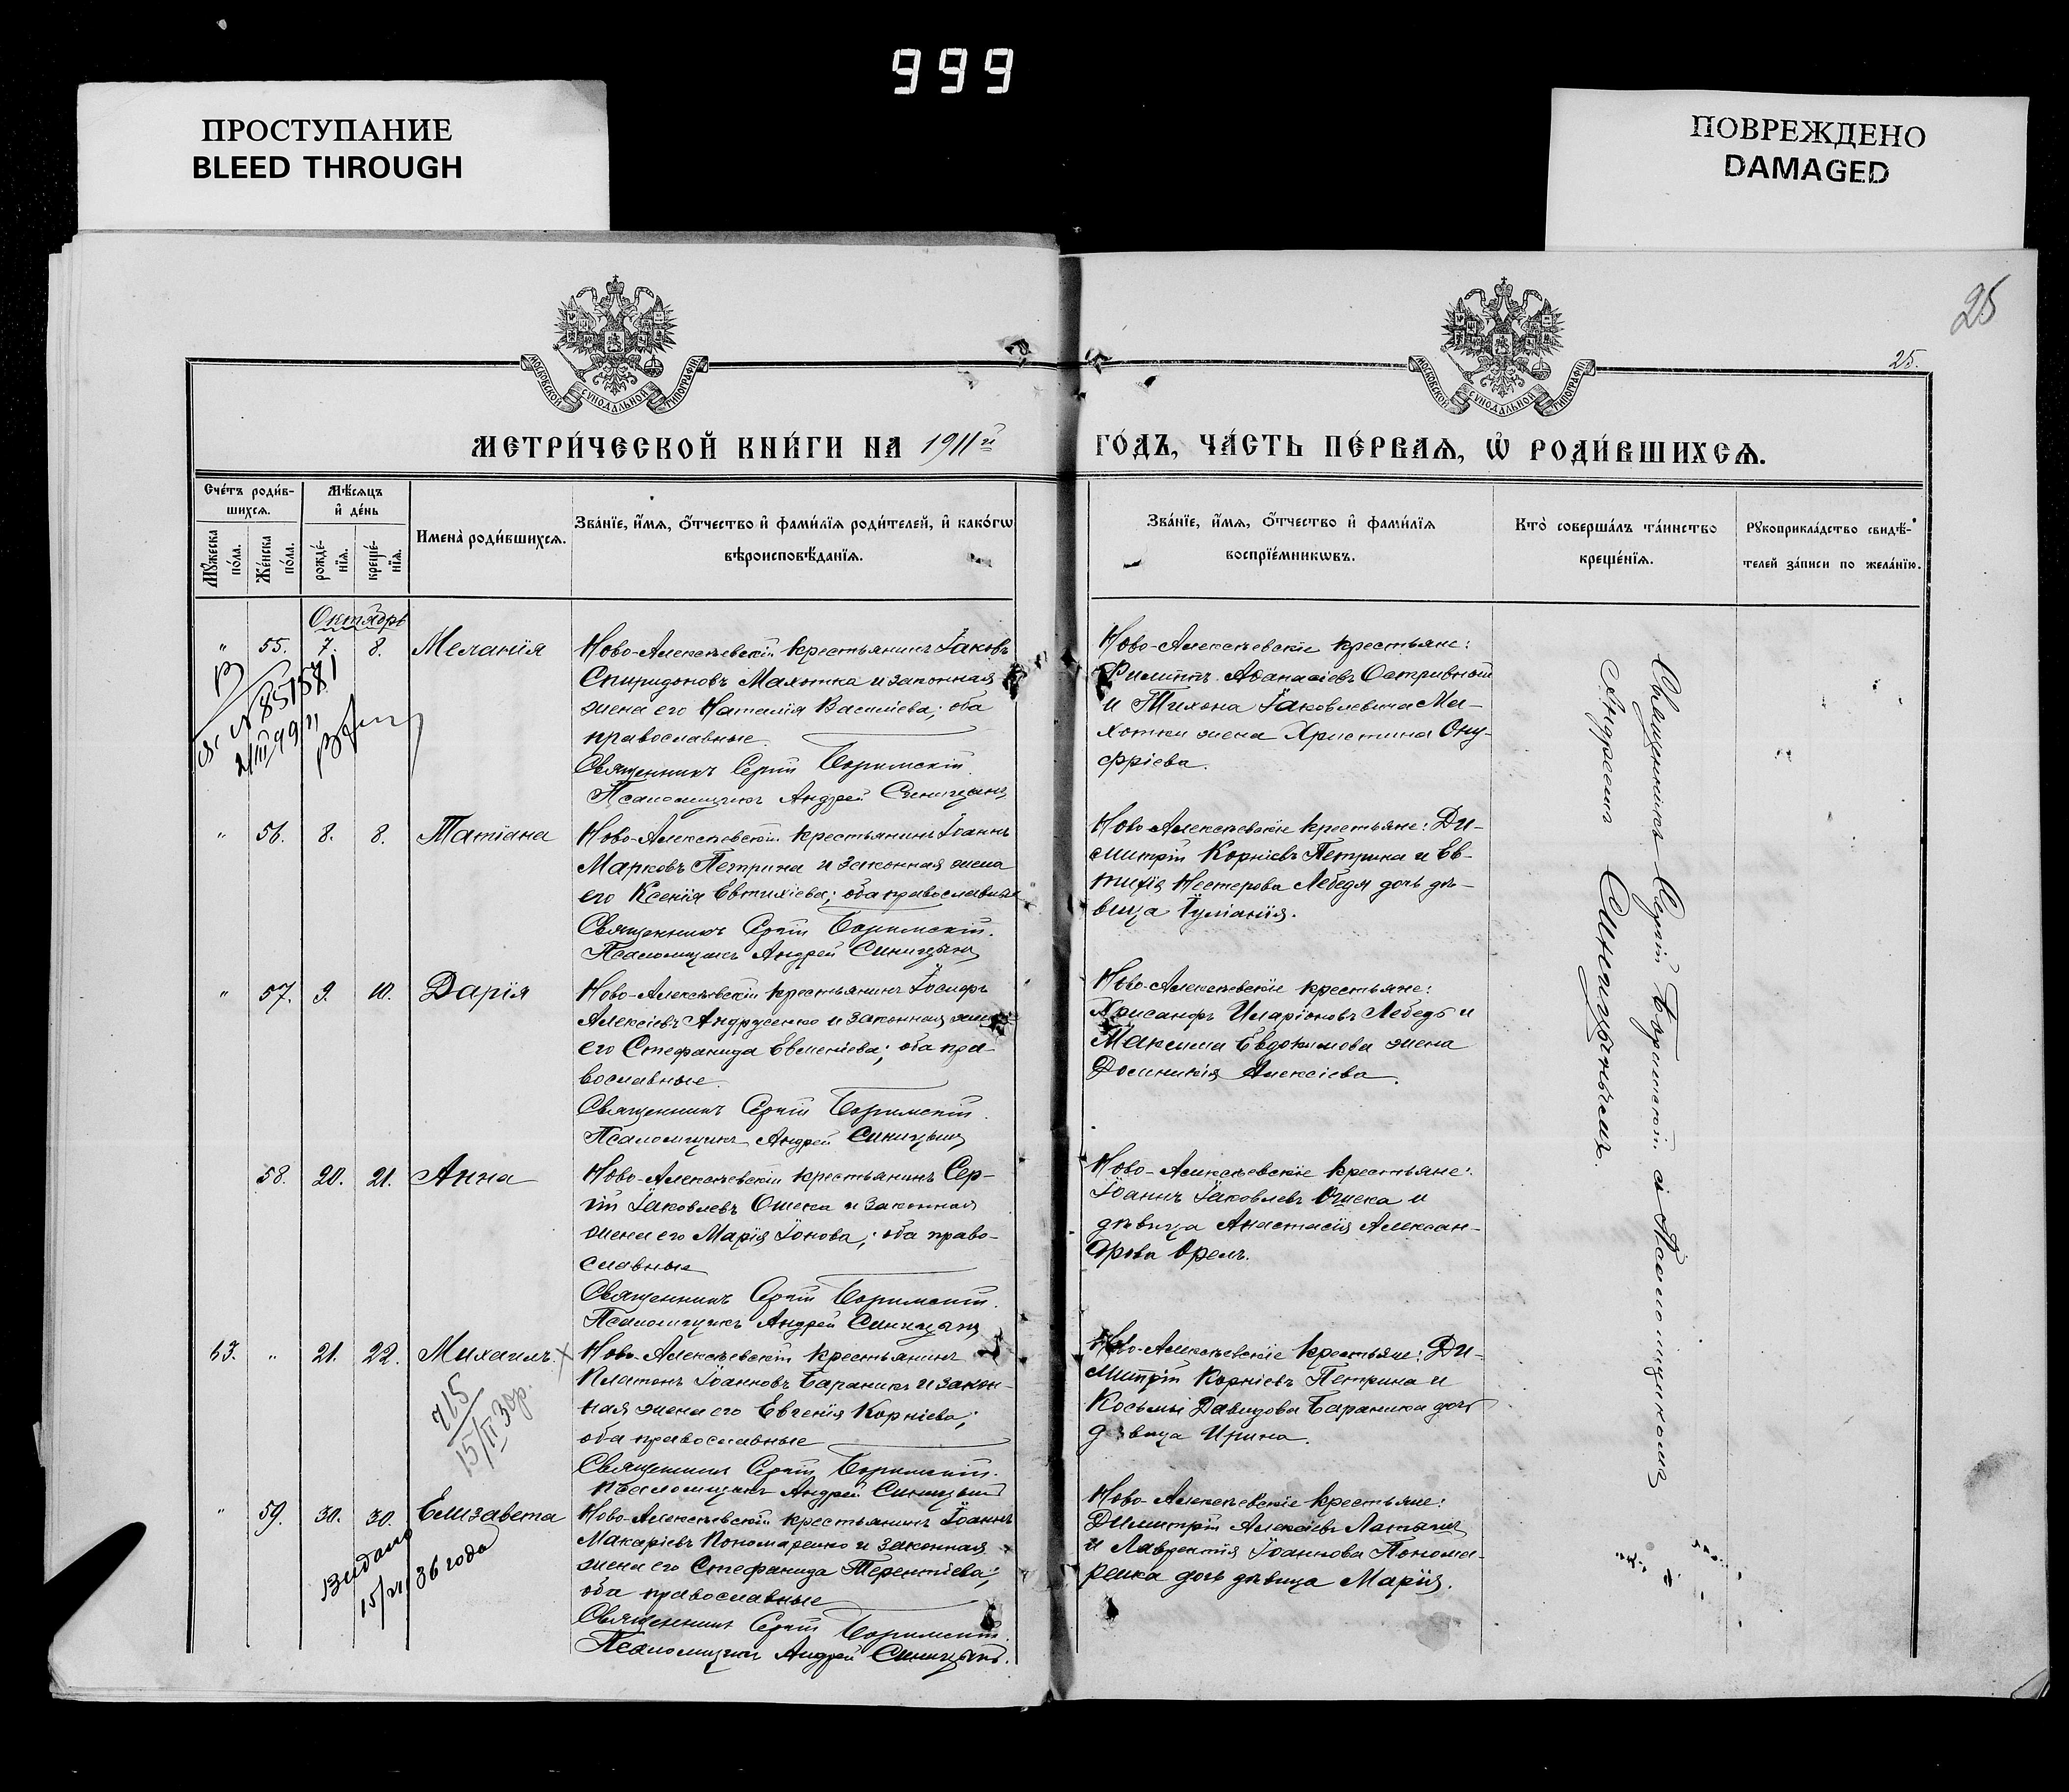 999
ПРОСТУПАНИЕ
BLEED THROUGH
ПОВРЕЖДЕНО
DAMAGED
25
25.
МОСКОВСКОЙ СѴНОДАЛЬНОЙ ТИПОГРАФІИ
МОСКОВСКОЙ СѴНОДАЛЬНОЙ ТИПОГРАФІИ
МЕТРИ́ЧЕСКОЙ КНИ́ГИ НА 1911й ГО́ДЪ, ЧА́СТЬ ПЕ́РВАѦ, Ѡ РОДИ́ВШИХСѦ.
Счетъ родив-
шихсѧ.
Мꙋжеска пола.
Женска пола.
Мѣсѧцъ и день
рожде-
нїѧ.
креще-
нїѧ.
Имена родившихсѧ.
Званїе, имѧ, отчество и фамилїѧ родителей, и какогѡ
вѣроисповѣданїѧ.
Званїе, имѧ, отчество и фамилїѧ
воспрїемникѡвъ.
Кто совершалъ таинство
крещенїѧ.
Рꙋкоприкладство свидѣ-
телей записи по желанїю.
Октябрь
" 55. 7. 8. Меланія
Ново-Алексѣевскій крестьянинъ Іаковъ
Спиридоновъ Махотка и законная
жена его Наталія Василіева; оба
православные.
Священникъ Сергій Боримскій.
Псаломщикъ Андрей Синицынъ
Ново-Алексѣевскіе крестьяне:
Филиппъ Аѳанасіевъ Остривной
и Тихона Іаковлевича Ма-
хотки жена Христина Ону-
фріева.
№ 851581
" 56. 8. 8. Татіана
Ново-Алексѣевскій крестьянинъ Іоаннъ
Марковъ Петрина и законная жена
его Ксенія Евтихіева; оба православные
Священникъ Сергій Боримскій.
Псаломщикъ Андрей Синицынъ
Ново-Алексѣевскіе крестьяне: Ди-
митрій Корніевъ Петрина и Ев-
тихія Нестерова Лебедя дочь дѣ-
вица Іуліанія.
" 57. 9. 10. Дарія
Ново-Алексѣевскій крестьянинъ Іосифъ
Алексіевъ Андрусенко и законная жена
его Стефанида Евменіева; оба пра-
вославные.
Священникъ Сергій Боримскій.
Псаломщикъ Андрей Синицынъ
Ново-Алексѣевскіе крестьяне:
Хрисанфъ Иларіоновъ Лебедь и
Максима Евдокимова жена
Домникія Алексіева.
58. 20. 21. Анна
Ново-Алексѣевскій крестьянинъ Сер-
гій Іаковлевъ Ошека и законная
жена его Марія Іонова; оба право-
славные
Священникъ Сергій Боримскій.
Псаломщикъ Андрей Синицынъ
Ново-Алексѣевскіе крестьяне:
Іоаннъ Іаковлевъ Ошека и
дѣвица Анастасія Алексан-
дрова Орелъ.
63. " 21. 22. Михаилъ. ×
Ново-Алексѣевскій крестьянинъ
Платонъ Іоанновъ Бараникъ и закон-
ная жена его Евгенія Корніева;
оба православные
Священникъ Сергій Боримскій.
Псаломщикъ Андрей Синицынъ
Ново-Алексѣевскіе крестьяне: Ди-
митрій Корніевъ Петрина и
Косьмы Давидова Бараника дочь
дѣвица Ирина.
715
15/II 30р.
" 59. 30. 30. Елизавета
Ново-Алексѣевскій крестьянинъ Іоаннъ
Макаріевъ Пономаренко и законная
жена его Стефанида Терентіева;
оба православные
Священникъ Сергій Боримскій.
Псаломщикъ Андрей Синицынъ.
Ново-Алексѣевскіе крестьяне:
Димитрій Алексіевъ
и Лаврентія Іоаннова Понома-
ренка дочь дѣвица Марія.
Видано
36 года
Священникъ Сергій Боримскій съ Псаломщикомъ
Андреемъ Синицынымъ.